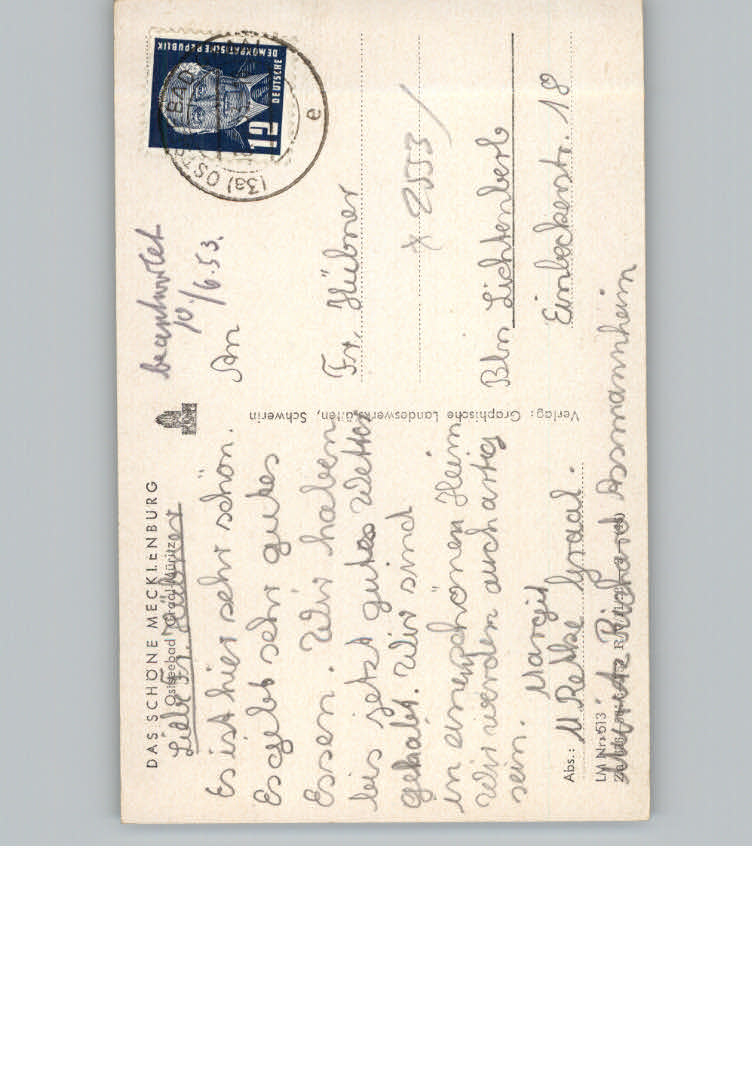 DAS SCHÖNE MECKLENBURG
Ostseebad Graal-Müritz
Liebe Fr. Hübner
Es ist hier sehr schön.
Es gebt sehr gutes
Essen. Wir haben
bis jetzt gutes Wetter
gehabt. Wir sind
in einem schönen Heim
Wir werden auch artig
sein. Margit
Abs.: M. Retke Graal.
LM Nr. 513
Müritz Richard Assmannheim
Verlag: Graphische Landeswerkstätten, Schwerin
beantwortet
10./6.53.
An
Fr. Hübner
* 2553/
Bln Lichtenberb
Einbeckerstr. 18
DEUTSCHE
DEMOKRATISCHE REPUBLIK
12
(3a) OST
BAD
e